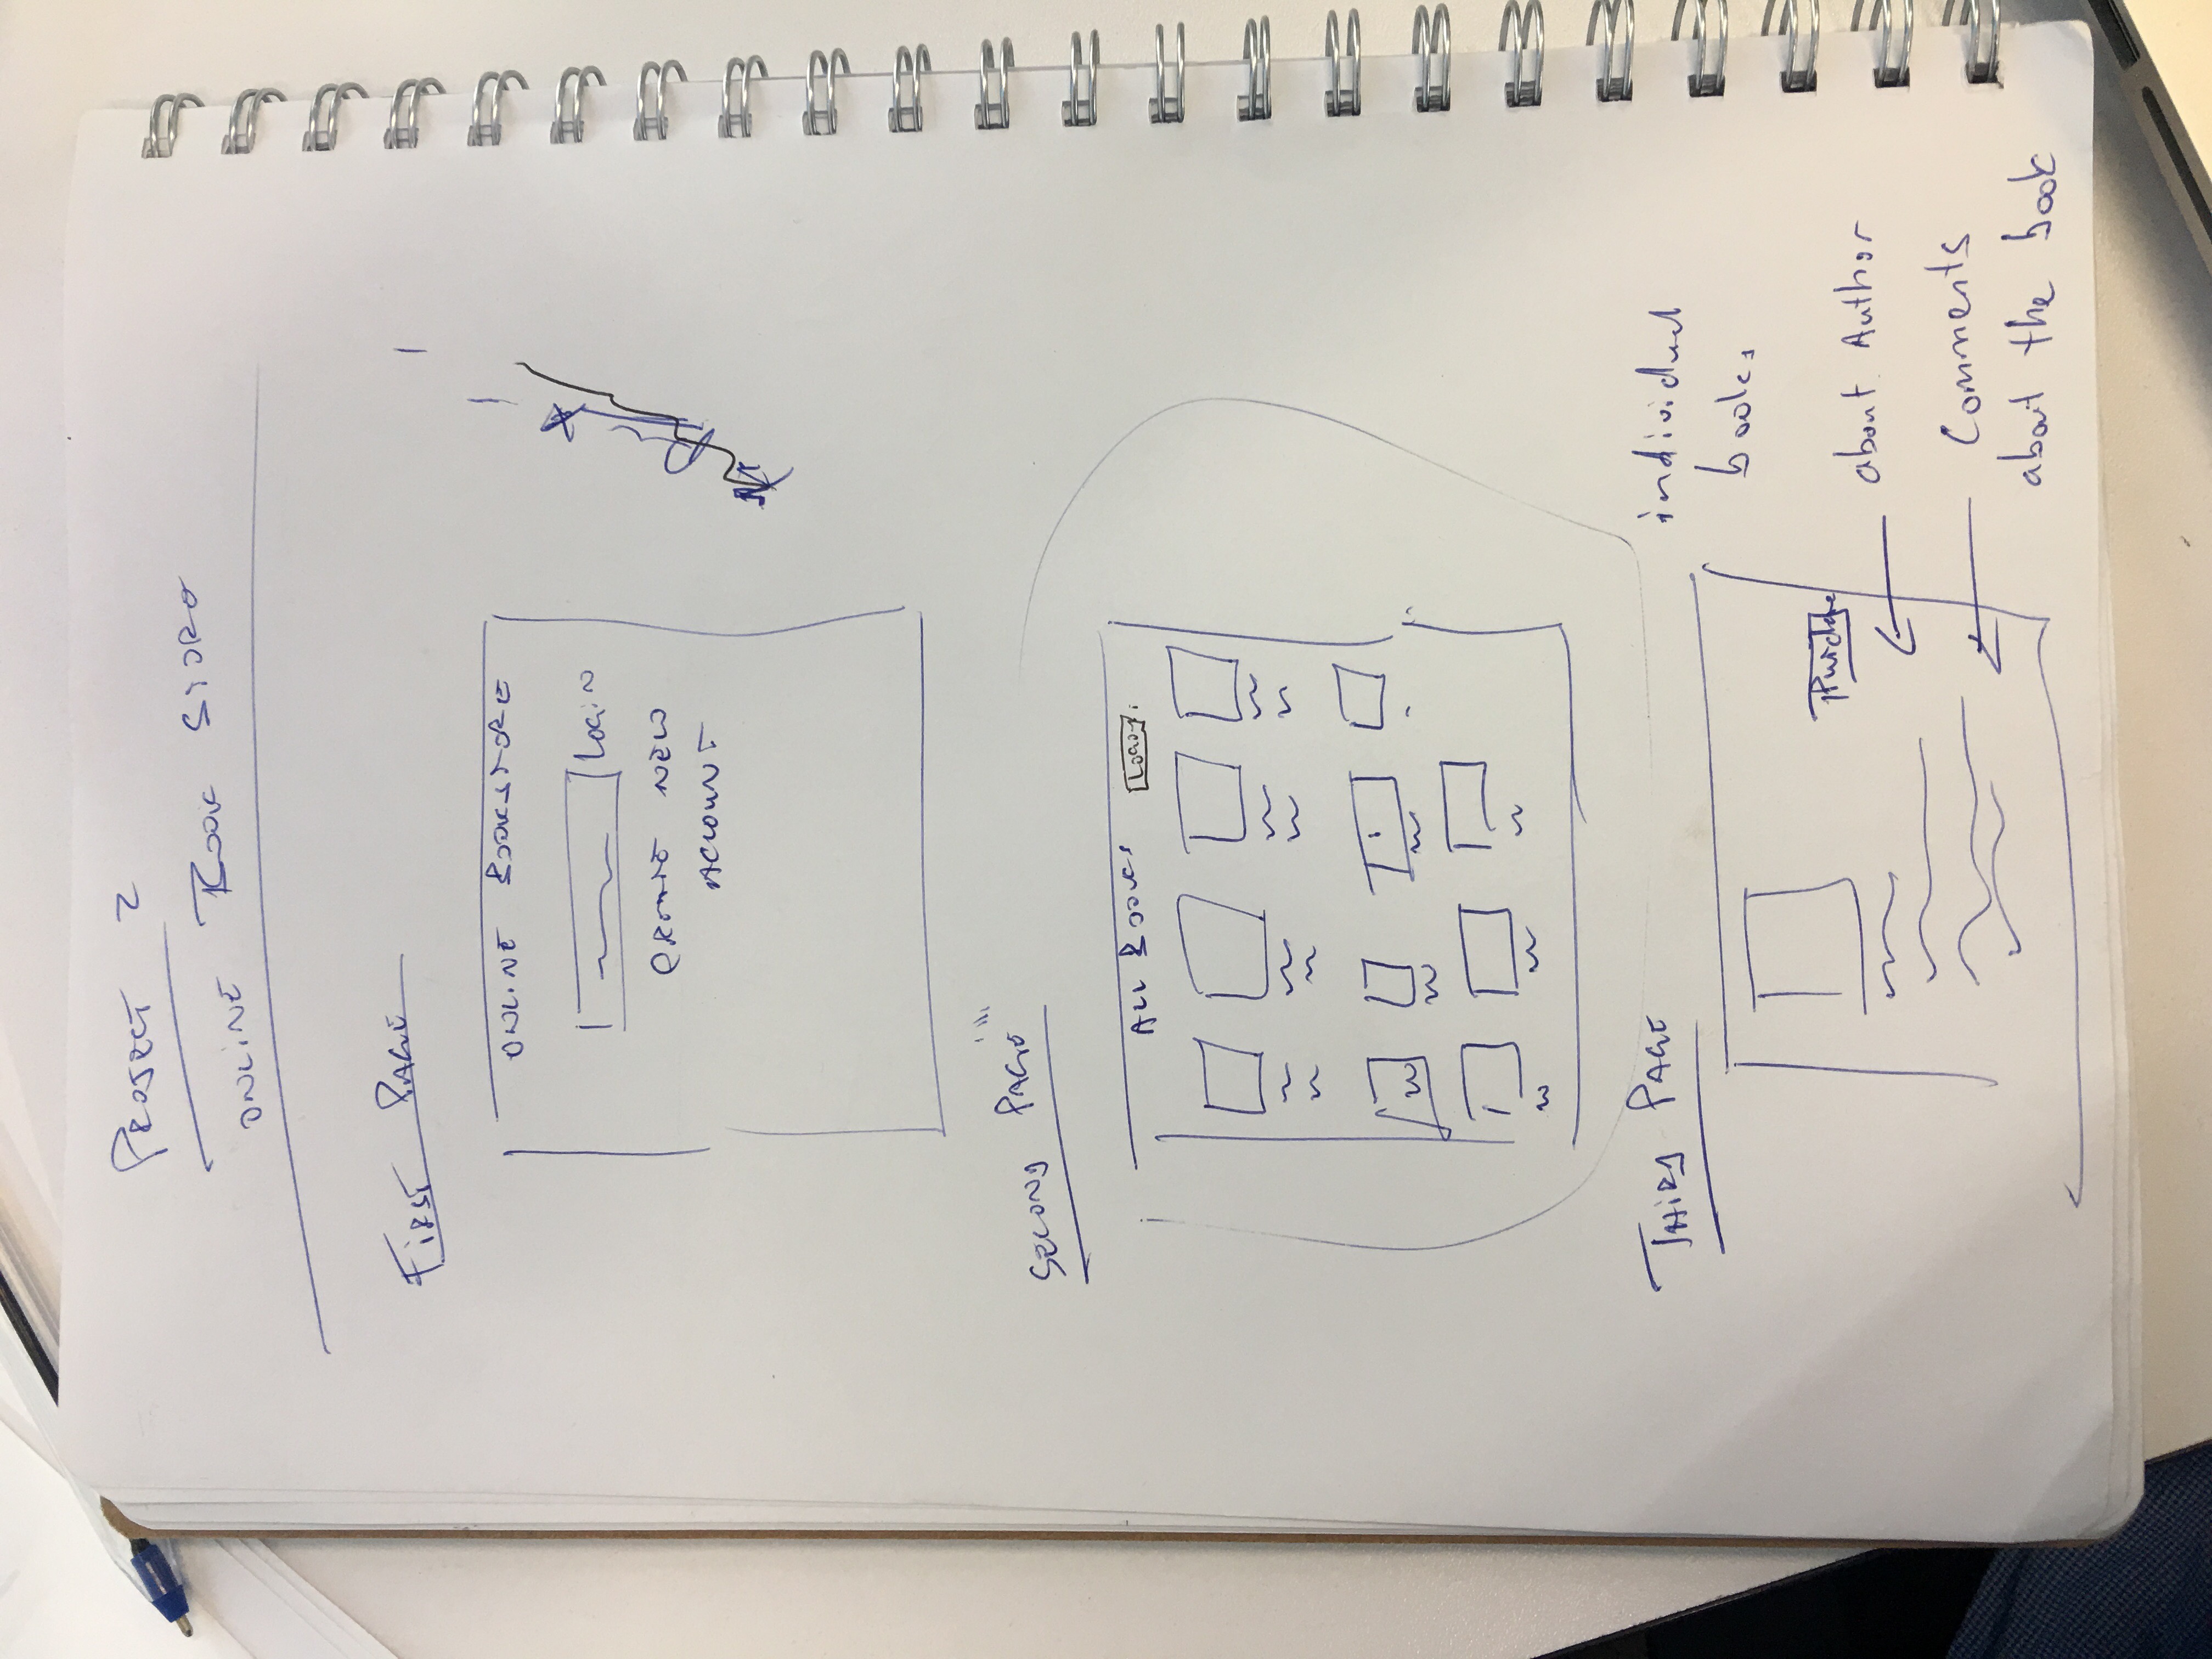 PROJECT 2
ONLINE BOOK STORE
FIRST PAGE
ONLINE BOOKSTORE
Login
CREATE NEW
ACCOUNT
SECOND PAGE
ALL BOOKS
Logout
THIRD PAGE
individual
books
Purchase
about Author
Comments
about the book